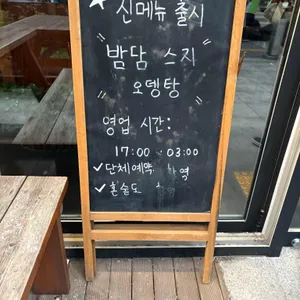 ★ 신메뉴 출시
"밤담 스지
오뎅탕"
영업 시간:
17:00 - 03:00
✓단체예약
✓혼술도